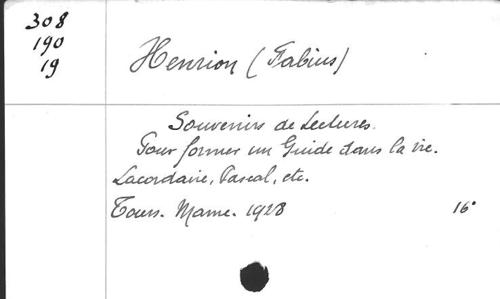 308
190
19
Henrion (Fabius)
Souvenirs de Lectures.
Pour former un Guide dans la vie.
Lacordaire, Pascal, etc.
Tours. Mame. 1928
16°